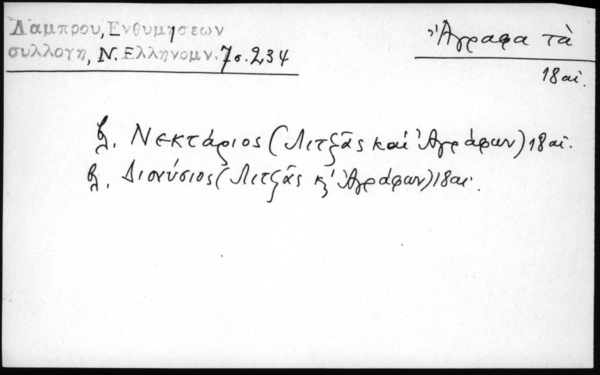 Λάμπρου, Ενθυμήσεων
συλλογη, Ν. Ελληνομν. 7 σ. 234
Ἄγραφα τὰ
18 αἰ.
βλ. Νεκτάριος (Λιτζᾶς καὶ Ἀγράφων) 18 αἰ.
βλ. Διονύσιος (Λιτζᾶς κ' Ἀγράφων) 18 αι.